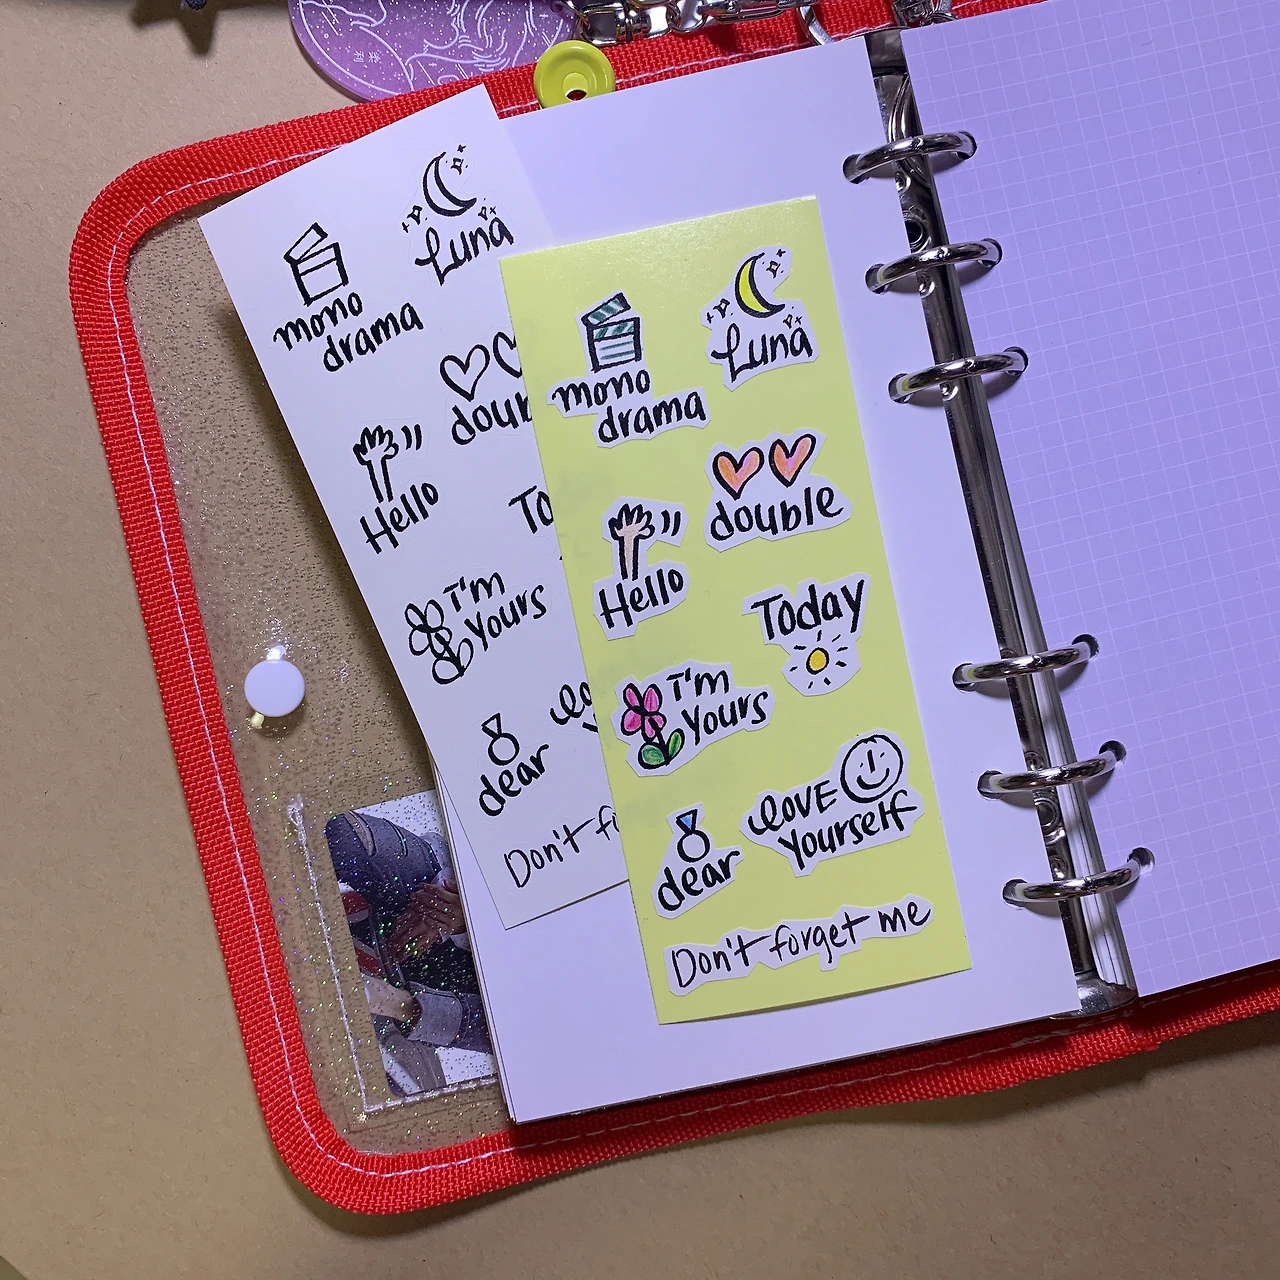 mono
drama
Luna
doub
Hello
To
I'm
Yours
dear
Don't fo
mono
drama
Luna
double
Hello
Today
I'm
Yours
love
Yourself
dear
Don't forget me